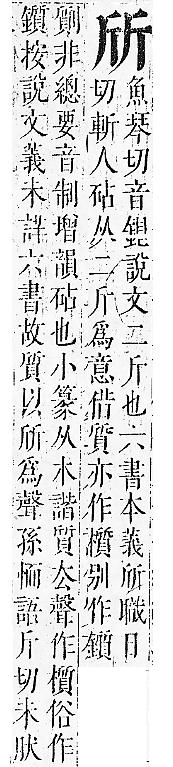 斦
魚琴切音㹞說文二斤也六書本義斦職日
切斬人砧从二斤爲意借質亦作櫍别作鑕
劕非總要音制增韻砧也小篆从木諧質厺聲作櫍俗作
鑕按說文義未詳六書故質以斦爲聲孫愐語斤切未肰